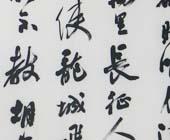 里長征人
使龍城飛
不教胡